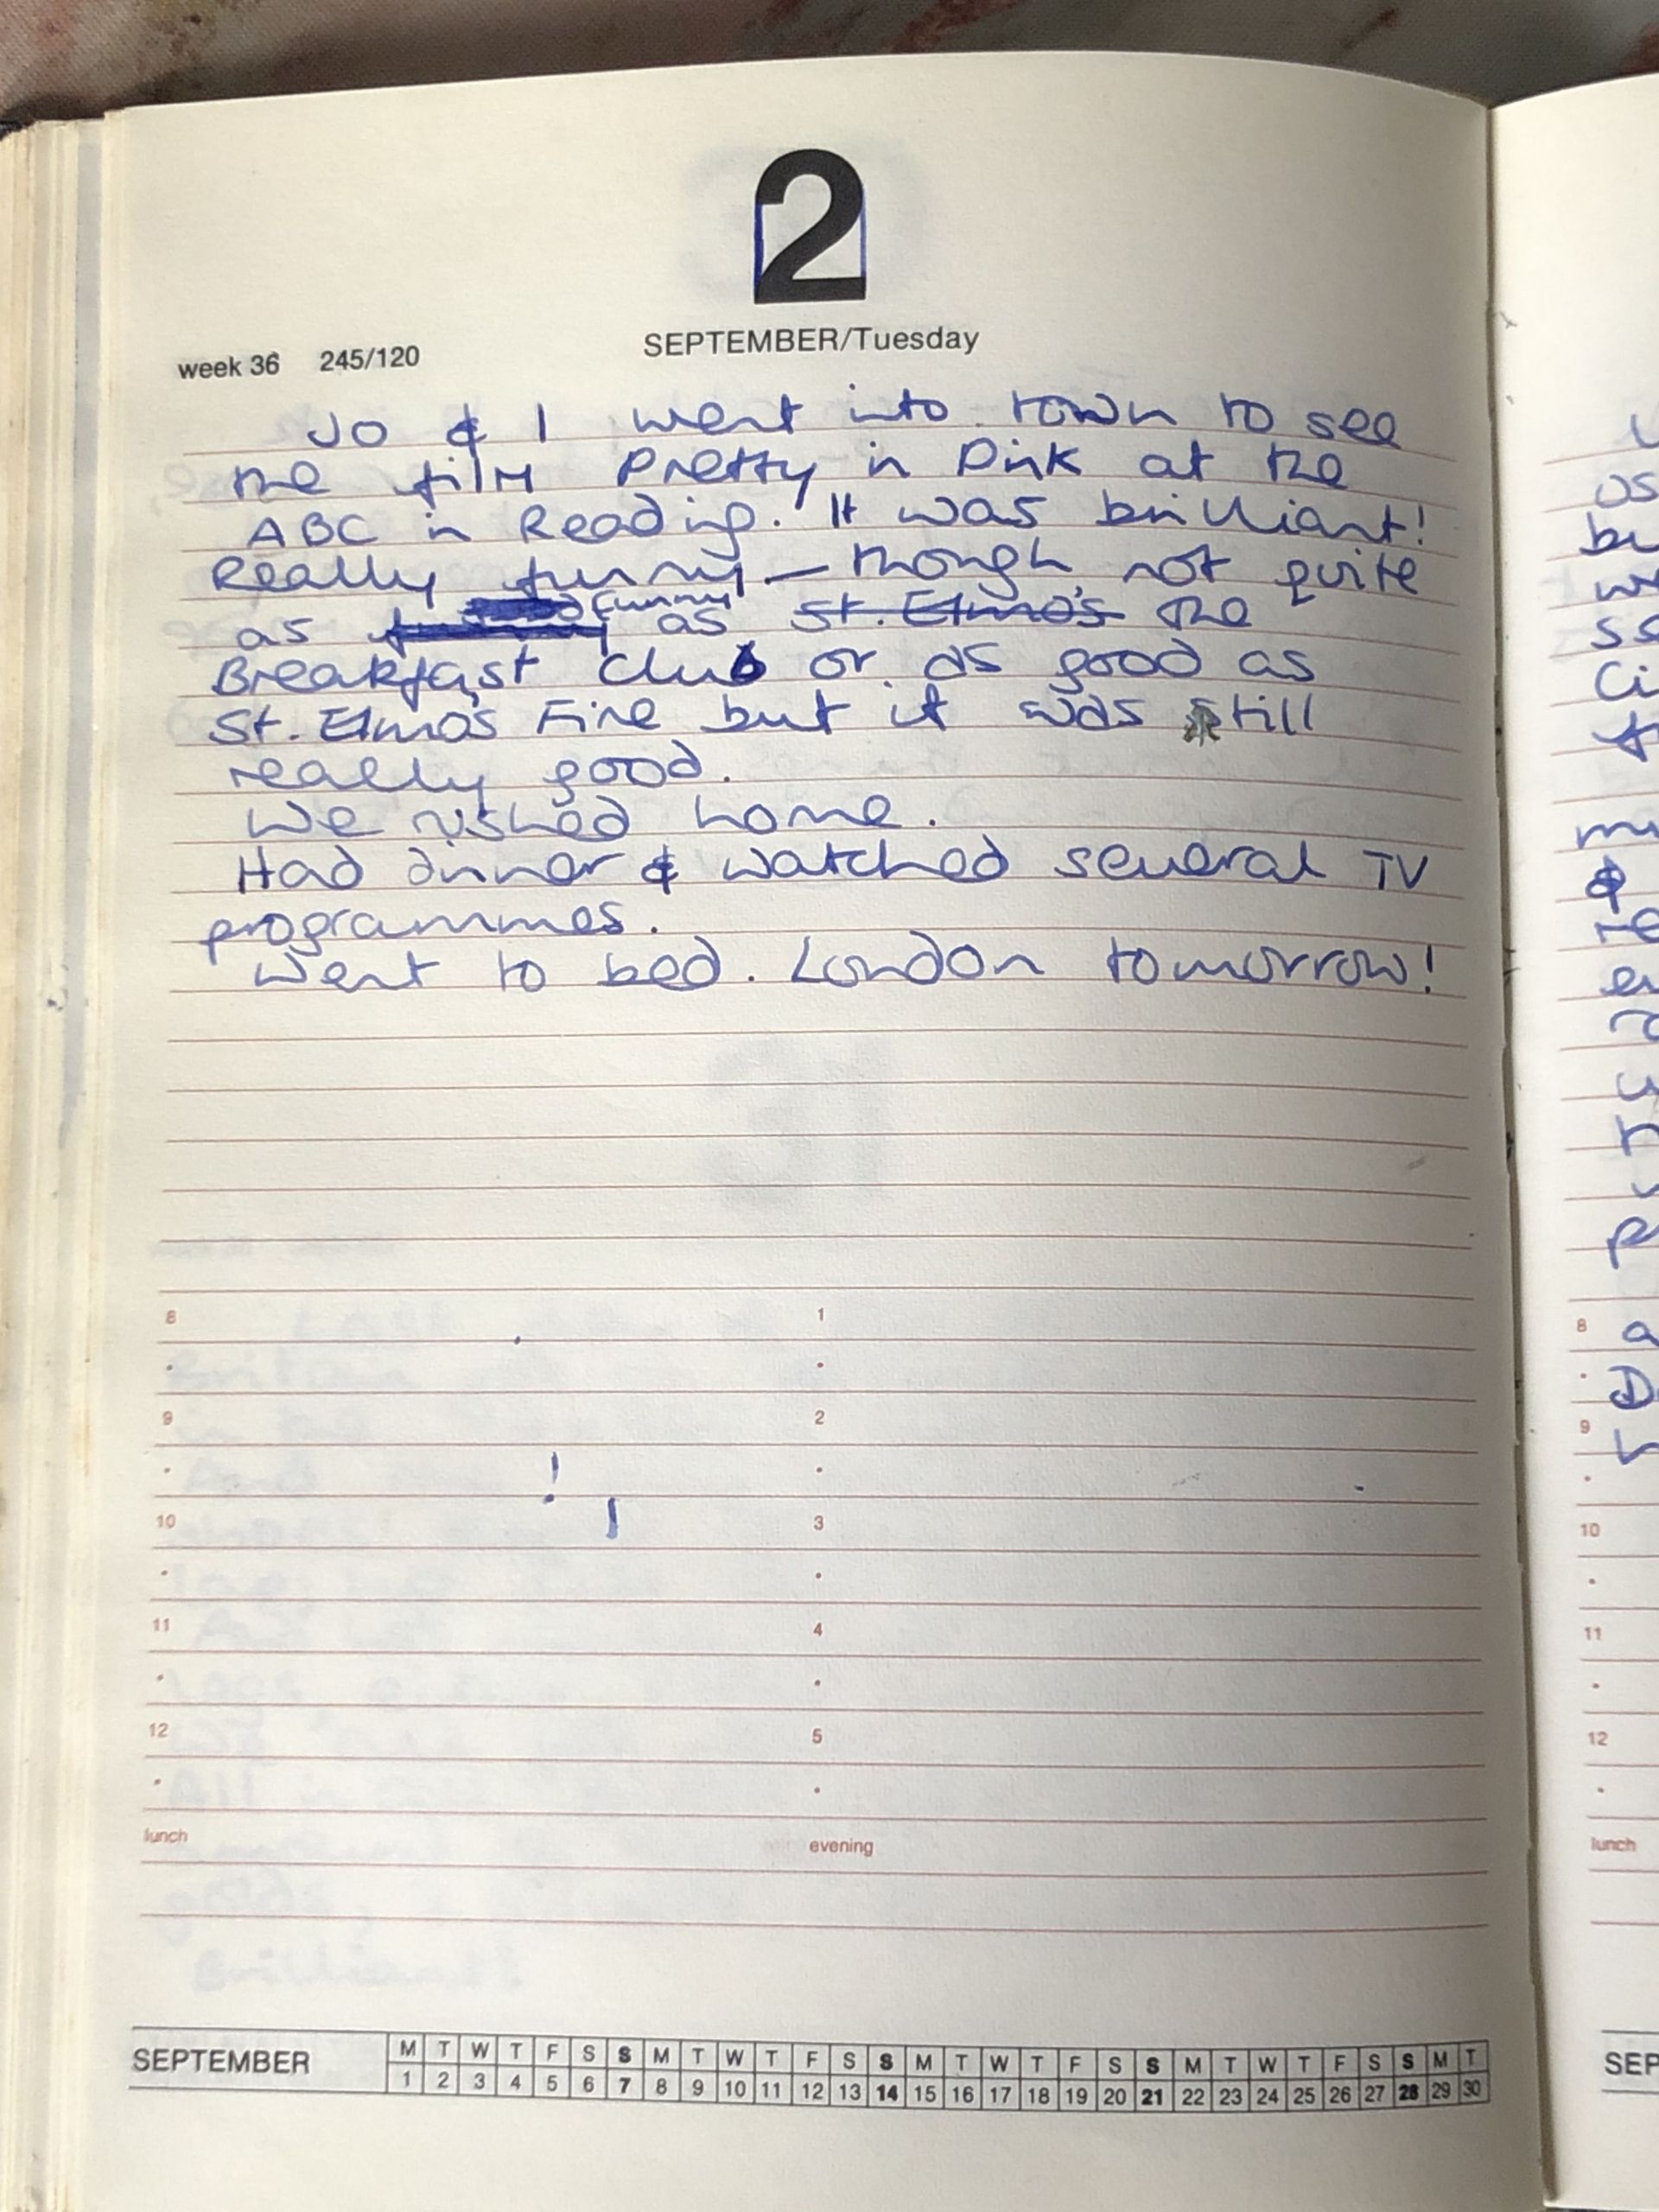 2
SEPTEMBER/Tuesday
week 36 245/120
Jo & I went into town to see
the film Pretty in Pink at the
ABC in Reading. It was brilliant!
Really funny — though not quite
as funny as St. Elmo's the
Breakfast Club or as good as
St. Elmo's Fire but it was still
really good.
We rushed home.
Had dinner & watched several TV
programmes.
Went to bed. London tomorrow!
8 1
9 2
!
10 3
11 4
12 5
lunch evening
SEPTEMBER
M T W T F S S M T W T F S S M T W T F S S M T W T F S S M T
1 2 3 4 5 6 7 8 9 10 11 12 13 14 15 16 17 18 19 20 21 22 23 24 25 26 27 28 29 30
8
9
10
11
12
lunch
SEP